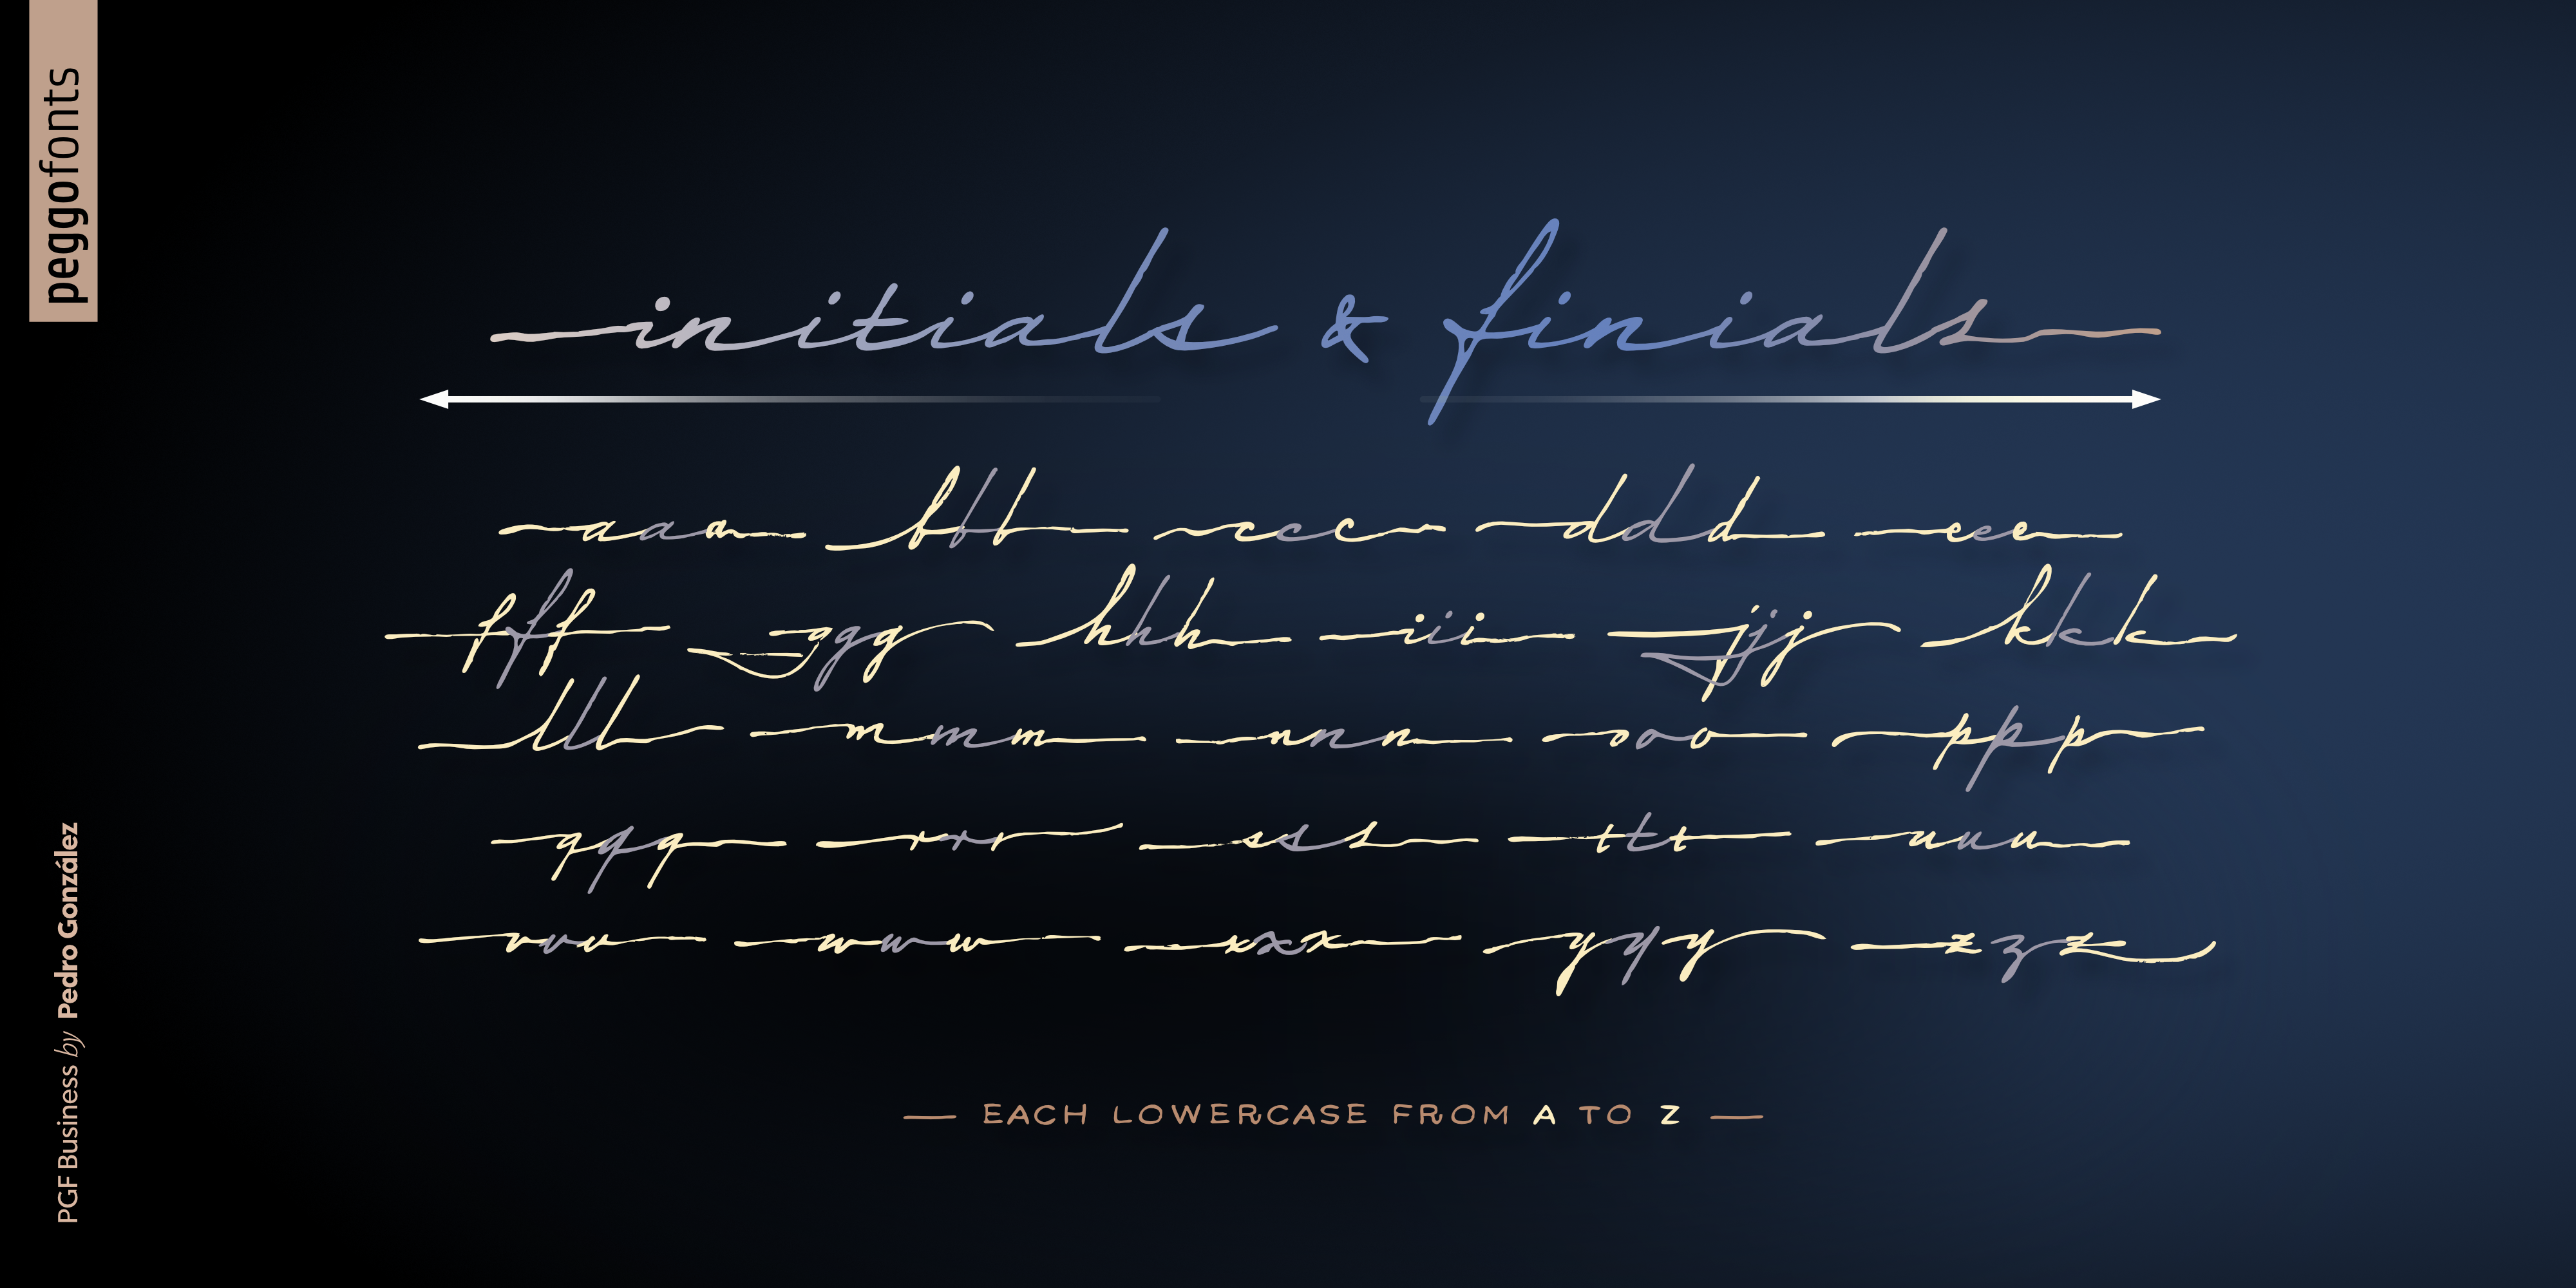 peggofonts
initials & finials
aaa bbb ccc ddd eee
fff ggg hhh iii jjj kkk
lll mmm nnn ooo ppp
qqq rrr sss ttt uuu
vvv www xxx yyy zzz
— EACH LOWERCASE FROM A TO Z —
PGF Business by Pedro González